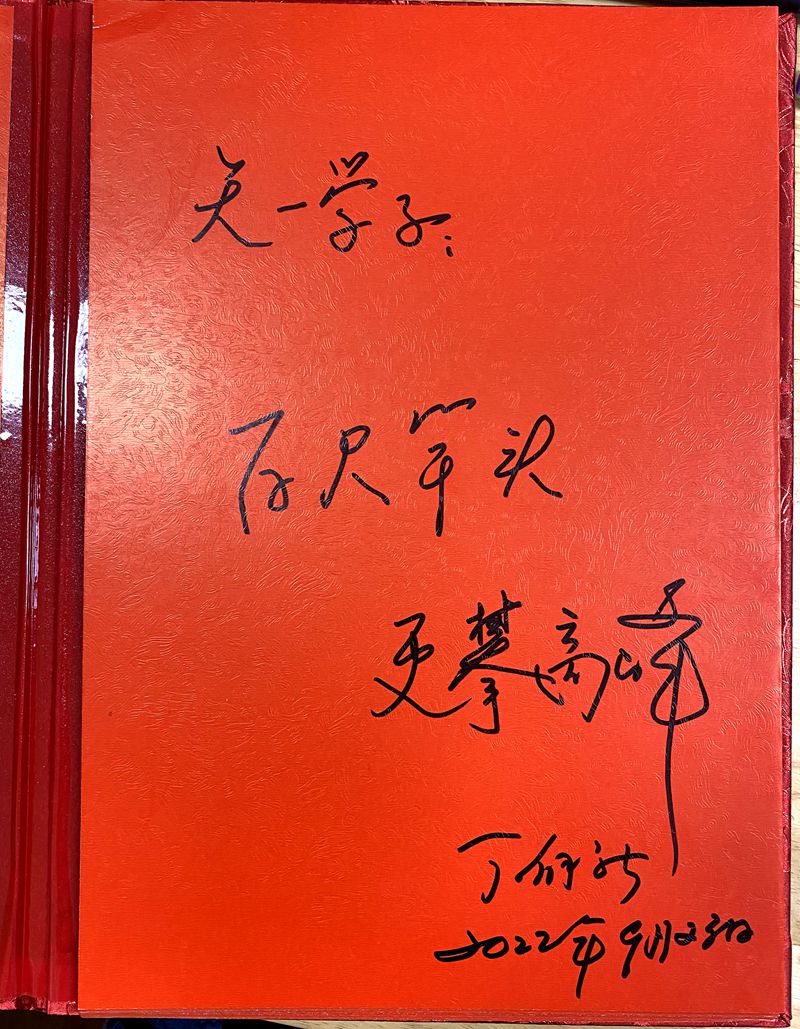 天一学子:
百尺竿头
更攀高峰
丁
2022年9月23日